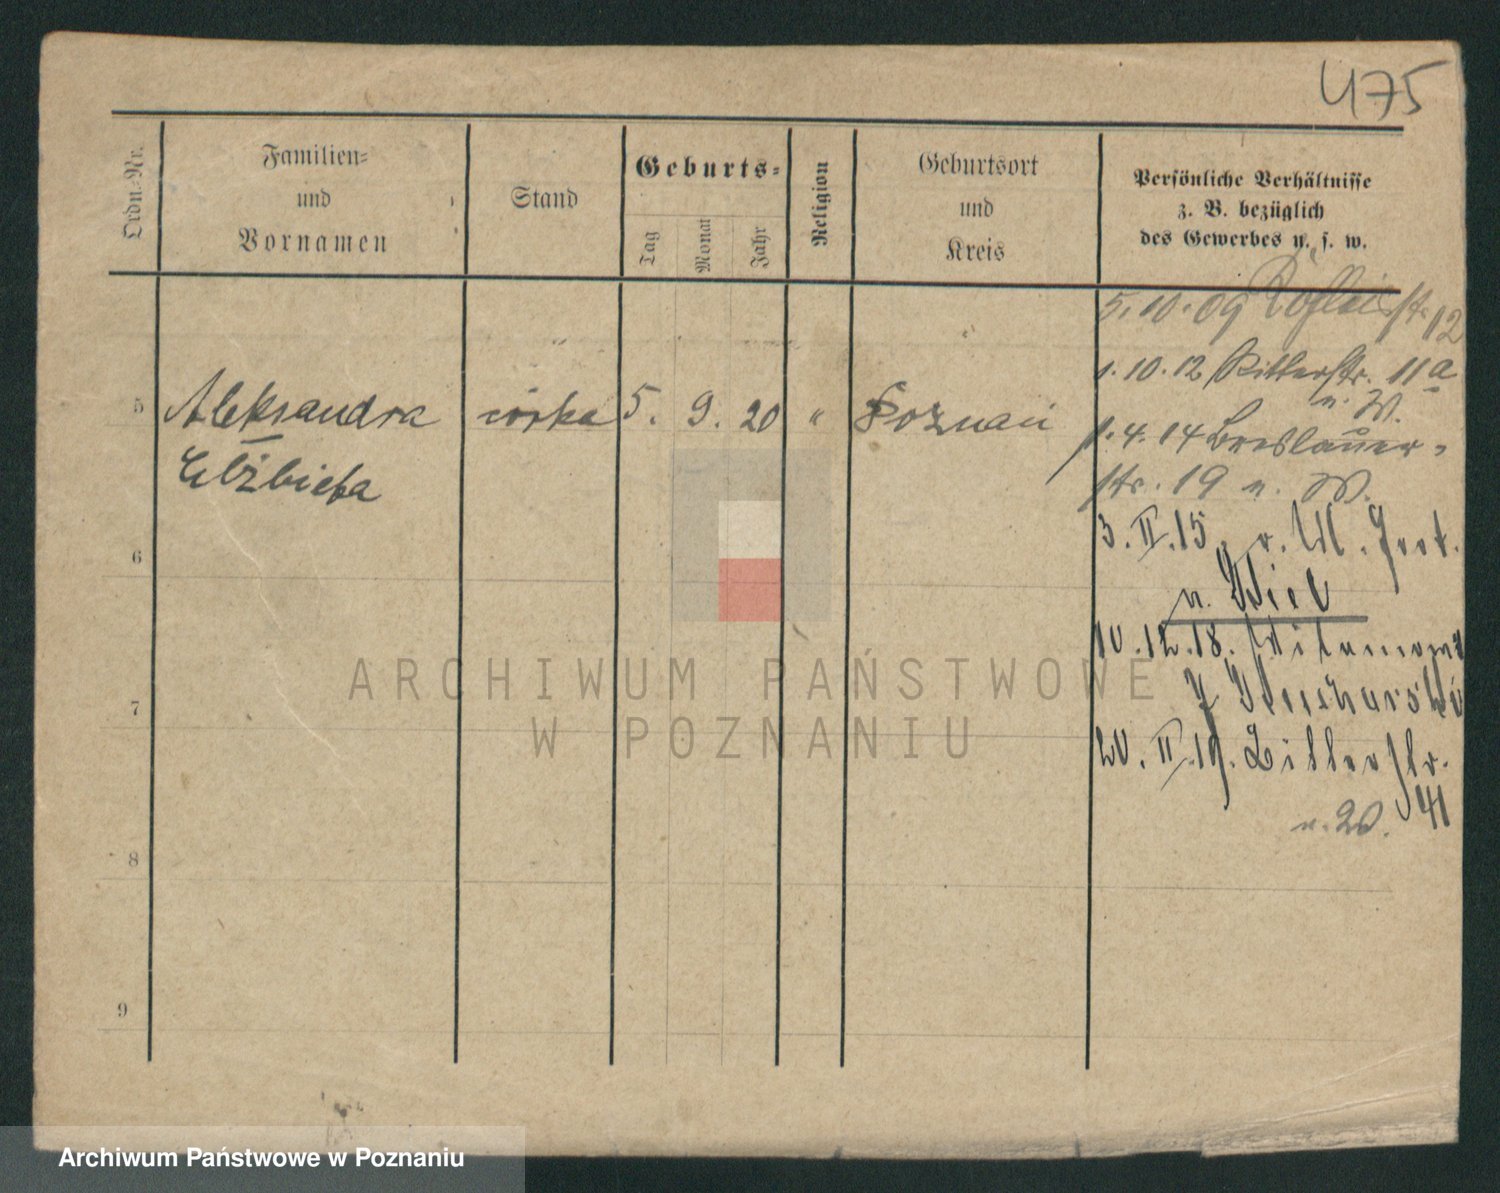 475
Ordn.-Nr.
Familien-
und
Vornamen
Stand
Geburts-
Tag
Monat
Jahr
Religion
Geburtsort
und
Kreis
Persönliche Verhältnisse
z. B. bezüglich
des Gewerbes u. s. w.
5.10.09 12
1.10.12 Ritterstr. 11a
u. W.
5 Aleksandra córka 5. 9. 20 " Poznań
Elżbieta
1.4.14 Breslauer-
str. 19 u. W.
3.II.15. v. M.
6
u. Biel
10.12.18.
7
20.II.19. 41
u. W.
8
9
ARCHIWUM PAŃSTWOWE
W POZNANIU
Archiwum Państwowe w Poznaniu